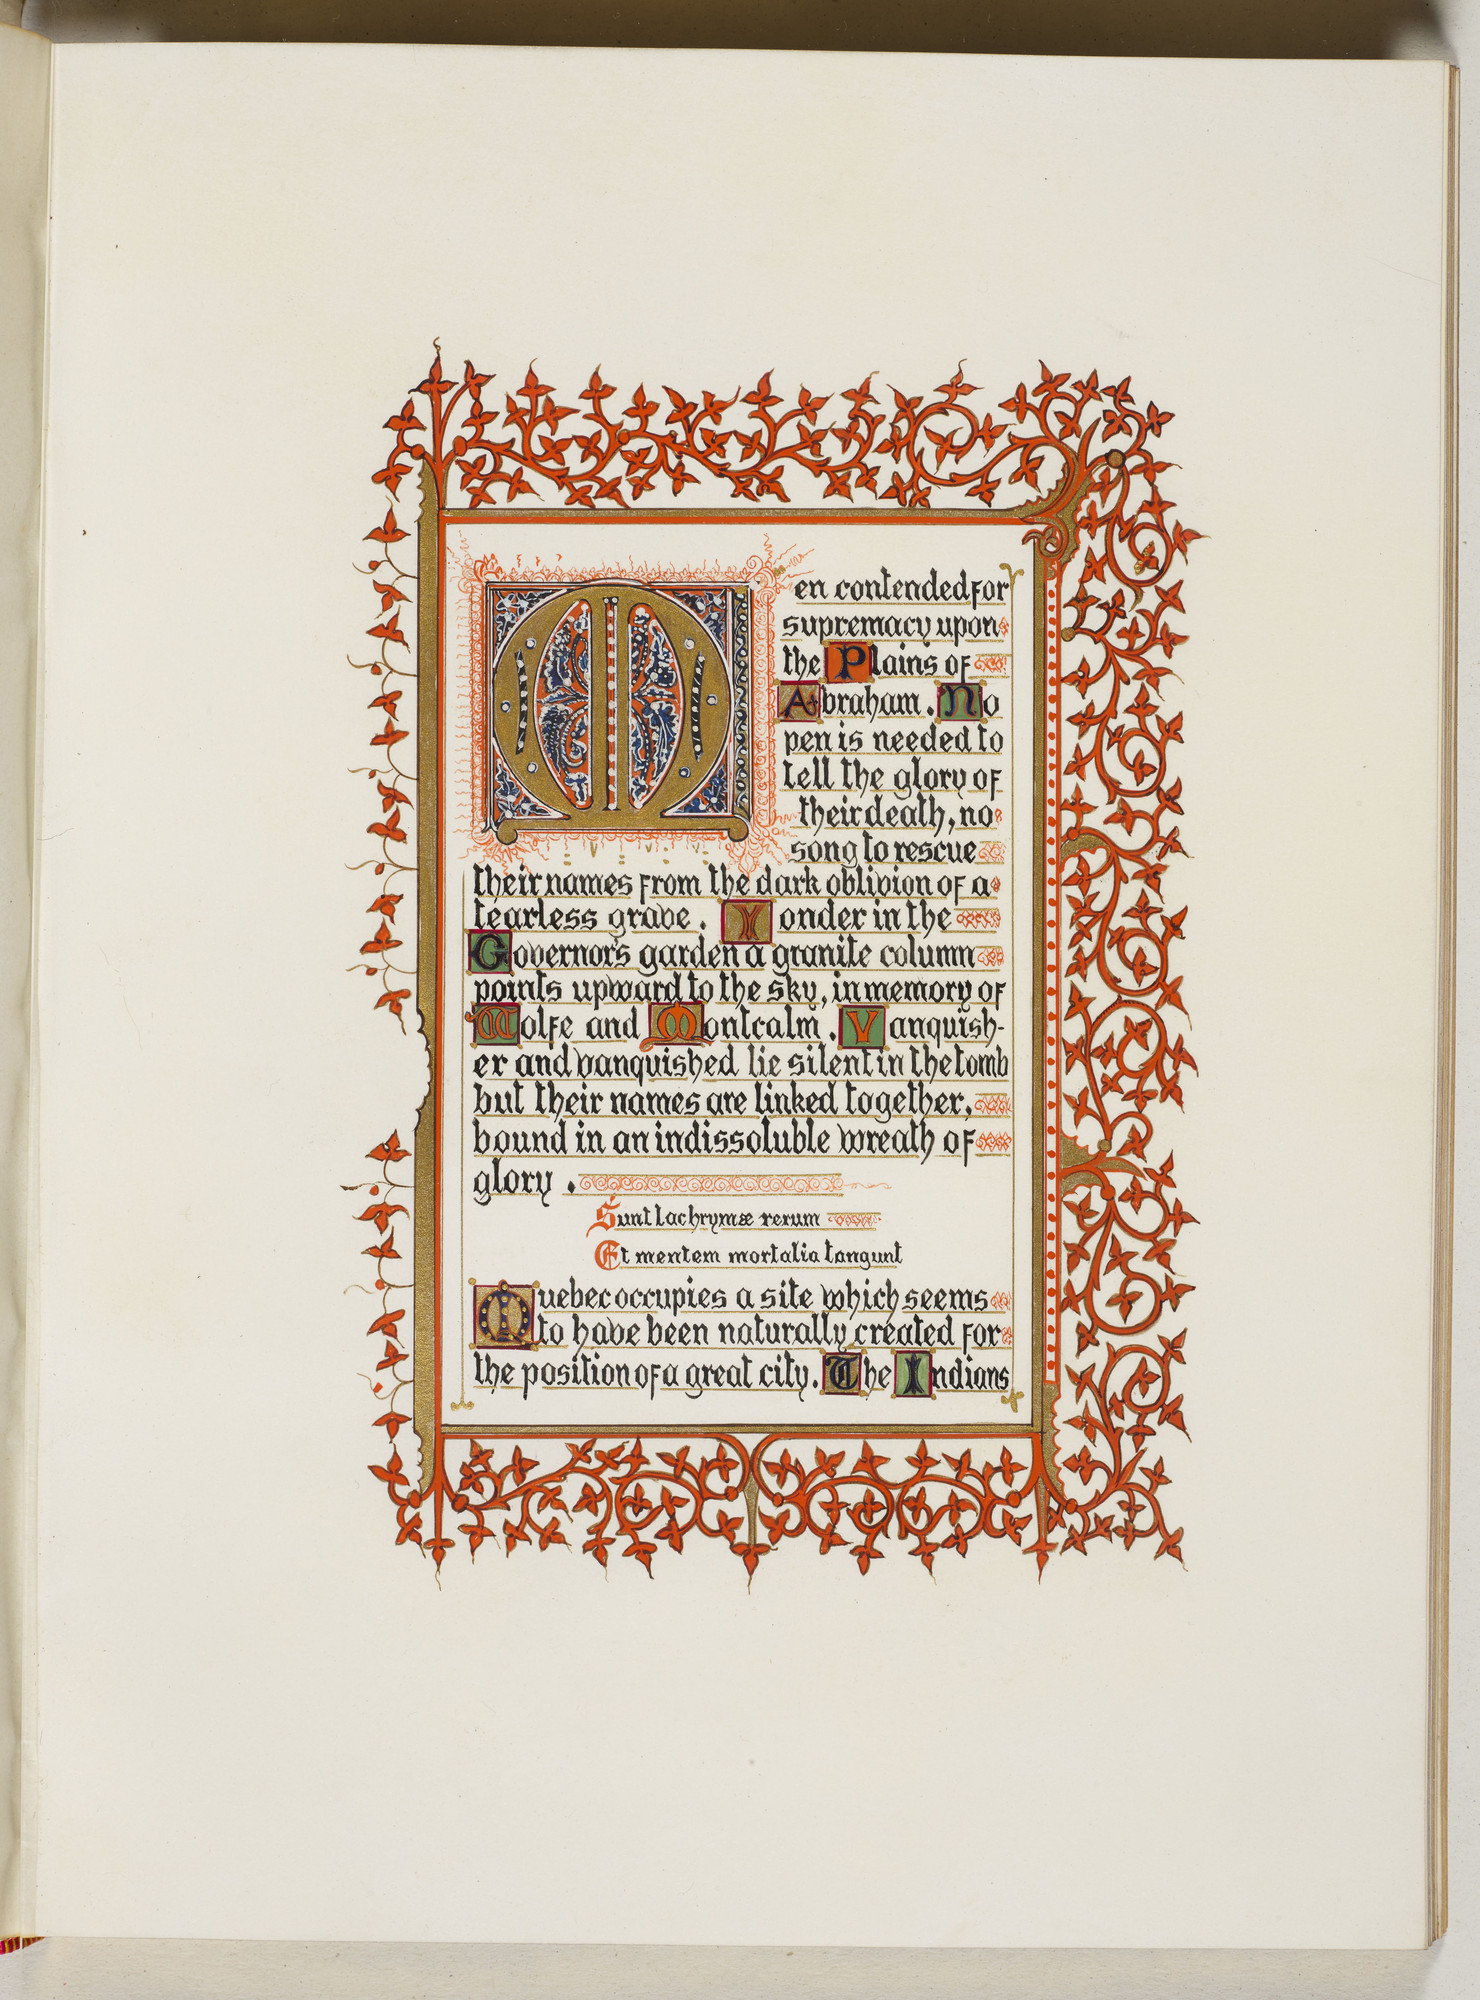 Men contended for
supremacy upon
the Plains of
Abraham. No
pen is needed to
tell the glory of
their death, no
song to rescue
their names from the dark oblivion of a
tearless grave. Yonder in the
Governor's garden a granite column
points upward to the sky, in memory of
Wolfe and Montcalm. Vanquish-
er and vanquished lie silent in the tomb
but their names are linked together,
bound in an indissoluble wreath of
glory.
Sunt lachrymæ rerum
Et mentem mortalia tangunt
Quebec occupies a site which seems
to have been naturally created for
the position of a great city. The Indians